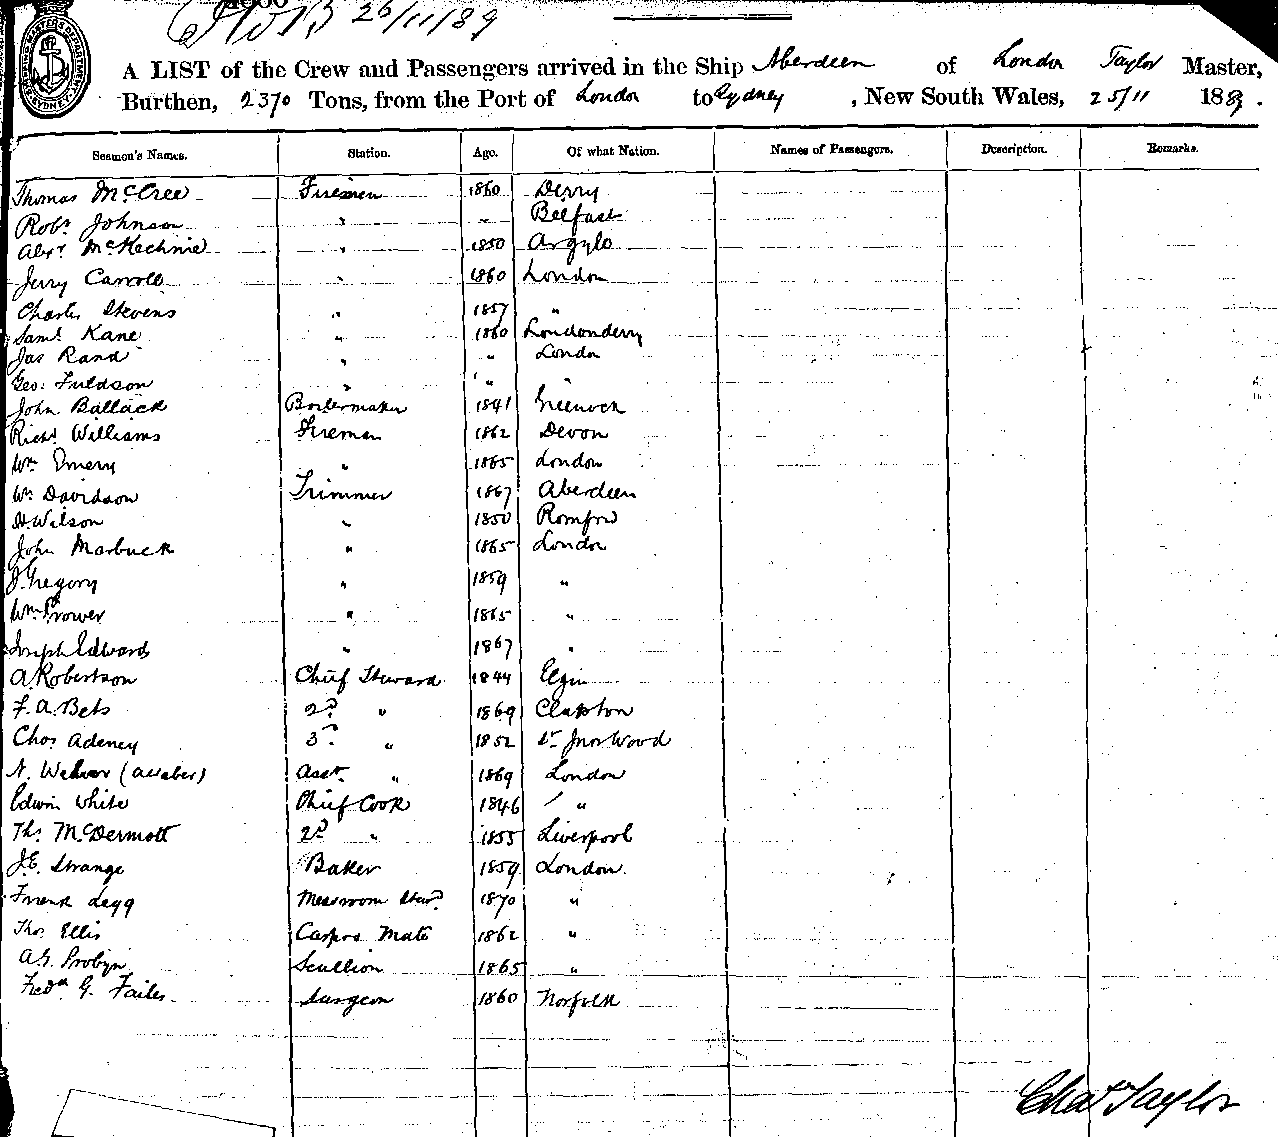 26/11/89
A LIST of the Crew and Passengers arrived in the Ship Aberdeen of London Taylor Master,
Burthen, 2370 Tons, from the Port of London to Sydney, New South Wales, 25/11 1889.
Seamen's Names. Station. Age. Of what Nation. Names of Passengers. Description. Remarks.
Thomas McCree Firemen 1860 Derry
Robt. Johnson " " Belfast
Alexr. McKechnie " 1850 Argyle
Jerry Carroll " 1860 London
Charles Stevens " 1857 "
Saml. Kane " 1860 Londonderry
Jas Rand " " London
Geo: " " "
John Ballack Boilermaker 1841 Greenock
Richd. Williams Fireman 1862 Devon
Wm. Emery " 1865 London
Wm. Davidson Trimmer 1867 Aberdeen
H. Wilson " 1850 Romford
John Marbuck " 1865 London
J. Gregory " 1859 "
Wm. Prower " 1865 "
Joseph Edwards " 1867 "
A. Robertson Chief Steward 1844 Elgin
F. A. Bets 2d " 1869 Clapton
Chas Adeney 3d " 1852 St. Jnos Wood
Asst. " 1869 London
Edwin White Chief Cook 1846 "
Ths. McDermott 2d " 1855 Liverpool
J. E. Strange Baker 1859 London.
Frank Legg Messroom Stewd. 1870 "
Thos Ellis Carprs Mate 1862 "
A. G. Probyn Scullion 1865 "
Fredk G. Failes Surgeon 1860 Norfolk
Chas Taylor